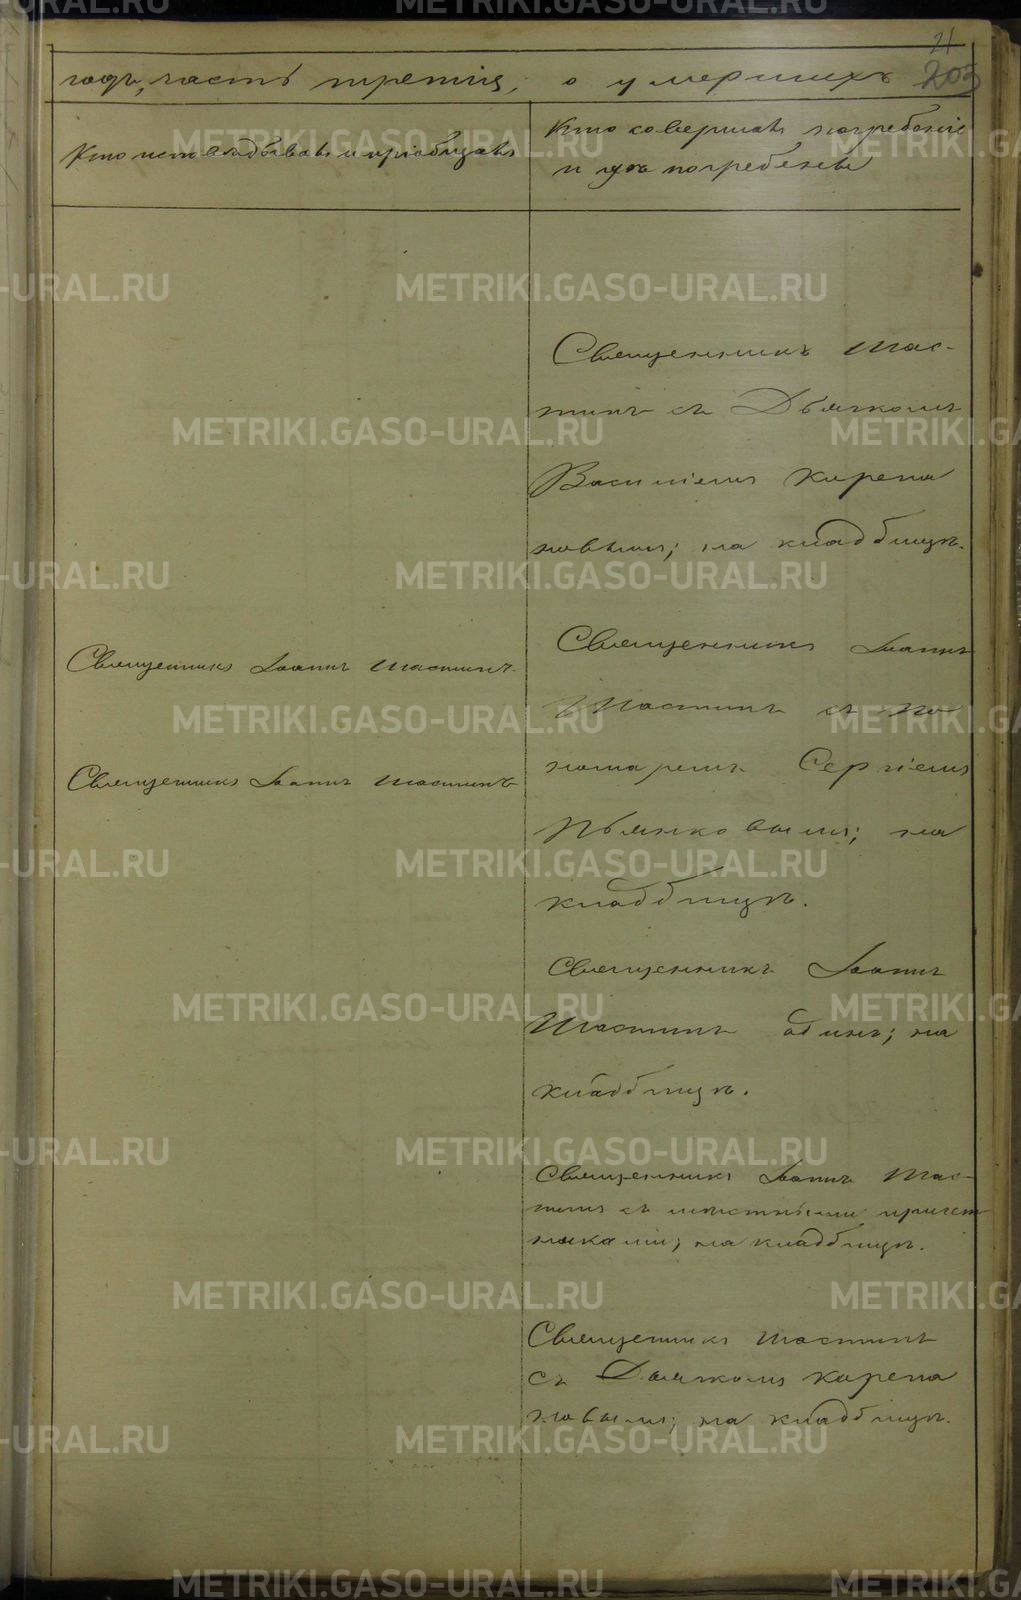 21
годъ, часть третія, о умершихъ 205
Кто исповѣдывалъ и пріобщалъ
Кто совершалъ погребеніе
и гдѣ погребены
Священникъ Шас-
тинъ съ Дьячкомъ
Василіемъ Карепа
новымъ; на кладбищѣ.
Священникъ Іоаннъ Шастинъ
Священникъ Іоаннъ Шастинъ
Священникъ Іоаннъ
Шастинъ съ По
номаремъ Сергіемъ
Пьянковымъ; на
кладбищѣ.
Священникъ Іоаннъ
Шастинъ одинъ; на
кладбищѣ.
Священникъ Іоаннъ Шас-
тинъ съ мѣстными причет
никами; на кладбищѣ.
Священникъ Шастинъ
съ Дьячкомъ Карепа
новымъ; на кладбищѣ.
METRIKI.GASO-URAL.RU